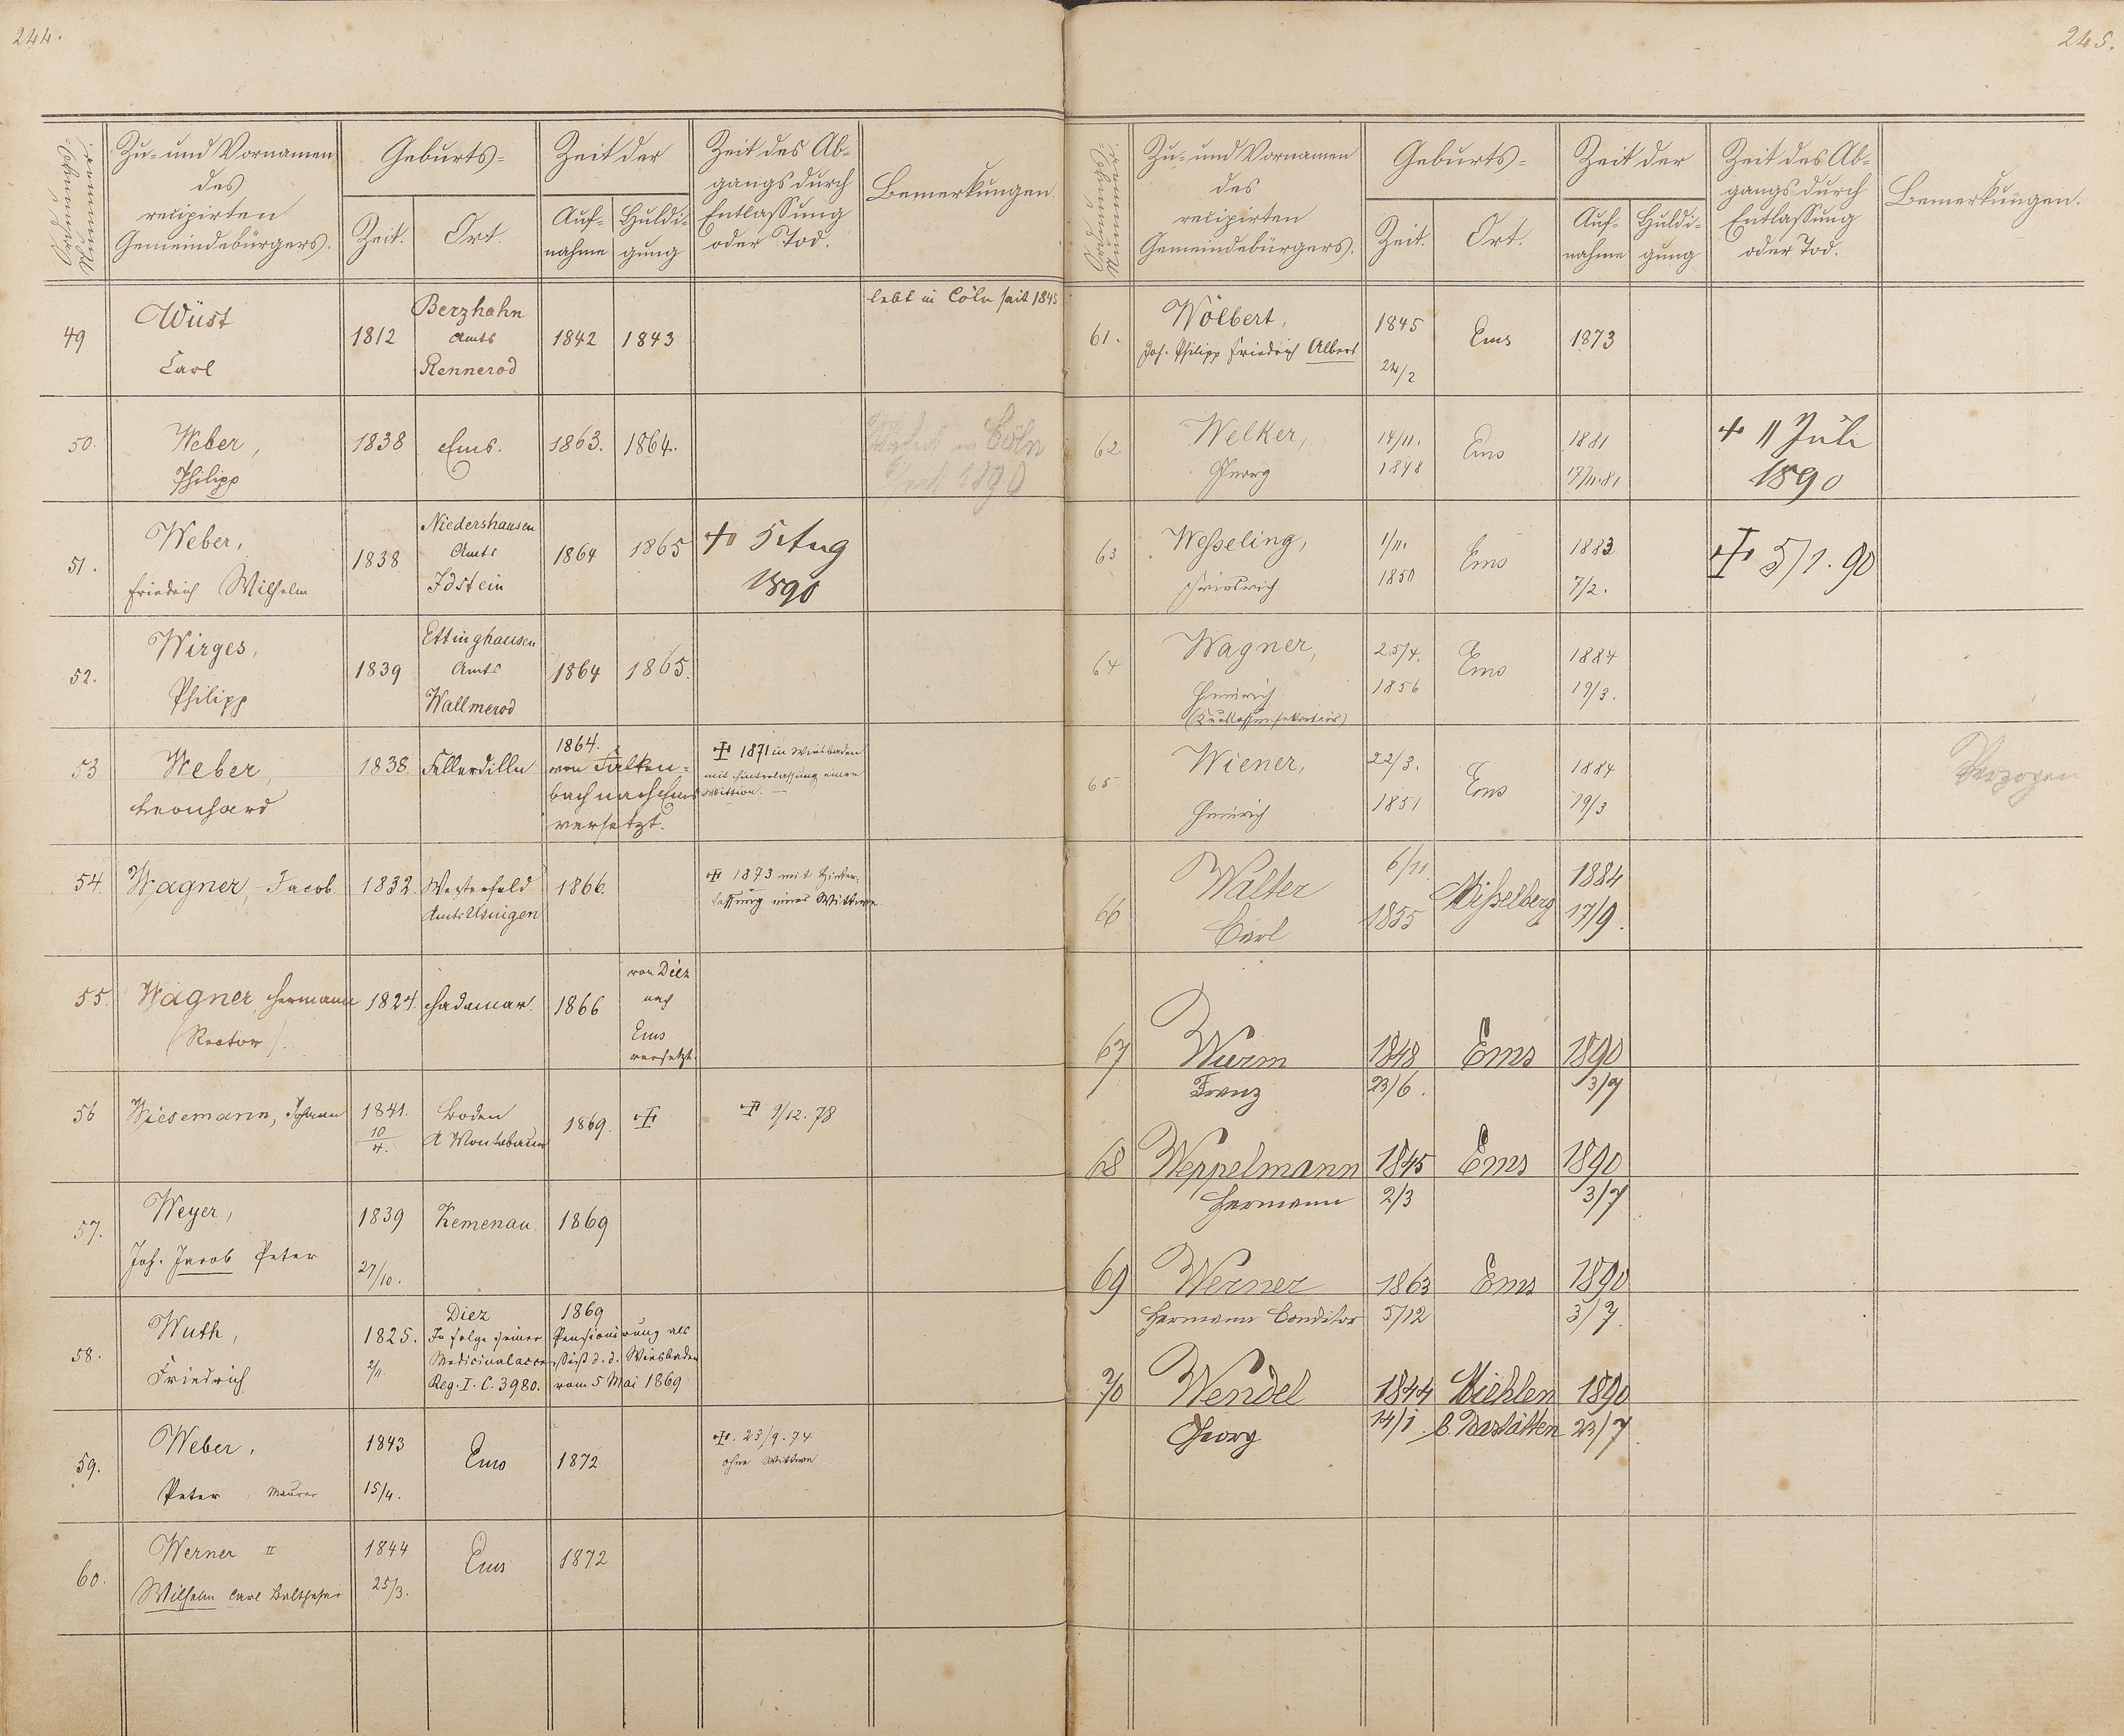 244.
Ordnungs-
Nummer.
Zu- und Vornamen
des
recipirten
Gemeindebürgers.
Geburts-
Zeit.
Ort.
Zeit der
Auf-
nahme
Huldi-
gung
Zeit des Ab-
gangs durch
Entlassung
oder Tod.
Bemerkungen.
49
Wüst
Carl
1812
Berzhahn
Amts
Rennerod
1842
1843
lebt in Cöln seit 1845
50.
Weber,
Philipp
1838
Ems.
1863.
1864.
in Cöln
1890
51.
Weber,
Friedrich Wilhelm
1838
Niedershausen
Amts
Idstein
1864
1865
† 5 Aug
1890
52.
Wirges,
Philipp
1839
Ettinghausen
Amts
Wallmerod
1864
1865.
53
Weber,
Leonhard
1838.
Fellerdilln
1864.
von Falken-
bach nach Ems
versetzt.
† 1871 in Wiesbaden
mit Hinterlassung einer
Wittwe. —
54.
Wagner, Jacob
1832.
Westerfeld
Amts Usingen
1866.
† 1873 mit Hinter-
lassung einer Wittwe.
55.
Wagner, Hermann
(Rector).
1824.
Hadamar.
1866
von Diez
nach
Ems
versetzt.
56
Wiesemann, Johann
1841.
10/4.
Boden
A Montabaur
1869.
†
† 9/12. 78
57.
Weyer,
Joh. Jacob Peter
1839
27/10.
Kemenau
1869
58.
Wuth,
Friedrich
1825.
2/11.
Diez
1869
In Folge seiner Pensionirung als
Medicinalaccessist d. d. Wiesbaden
Reg. I. C. 3980. vom 5 Mai 1869
59.
Weber,
Peter, Maurer
1843
15/4.
Ems
1872
†. 23/9. 74
ohne Wittwe
60.
Werner II
Wilhelm Carl Balthasar
1844
25/3.
Ems
1872
245.
Ordnungs-
Nummer.
Zu- und Vornamen
des
recipirten
Gemeindebürgers.
Geburts-
Zeit.
Ort.
Zeit der
Auf-
nahme
Huldi-
gung
Zeit des Ab-
gangs durch
Entlassung
oder Tod.
Bemerkungen.
61.
Wölbert,
Joh. Philipp Friedrich Albert
1845
24/2
Ems
1873
62
Welker,
Georg
14/11.
1848
Ems
1881
17/11.81
† 11 Juli
1890
63
Weßeling,
Friedrich
1/11.
1850
Ems
1883
7/2.
† 5/1. 90
64
Wagner,
Heinrich
(Kurkassensekretair)
25/4.
1856
Ems
1884
19/3.
65
Wiener,
Heinrich
22/3.
1851
Ems
1884
19/3
Verzogen
66
Walter
Carl
6/11
1855
Mißelberg
1884
17/9.
67
Wurm
Franz
1848
23/6.
Ems
1890
3/7
68
Weppelmann
Hermann
1845
2/3
Ems
1890
3/7
69
Werner
Hermann Conditor
1863
5/12
Ems
1890
3/7.
70
Wendel
Georg
1844
14/1.
Miehlen
b. Nastätten
1890
23/7.